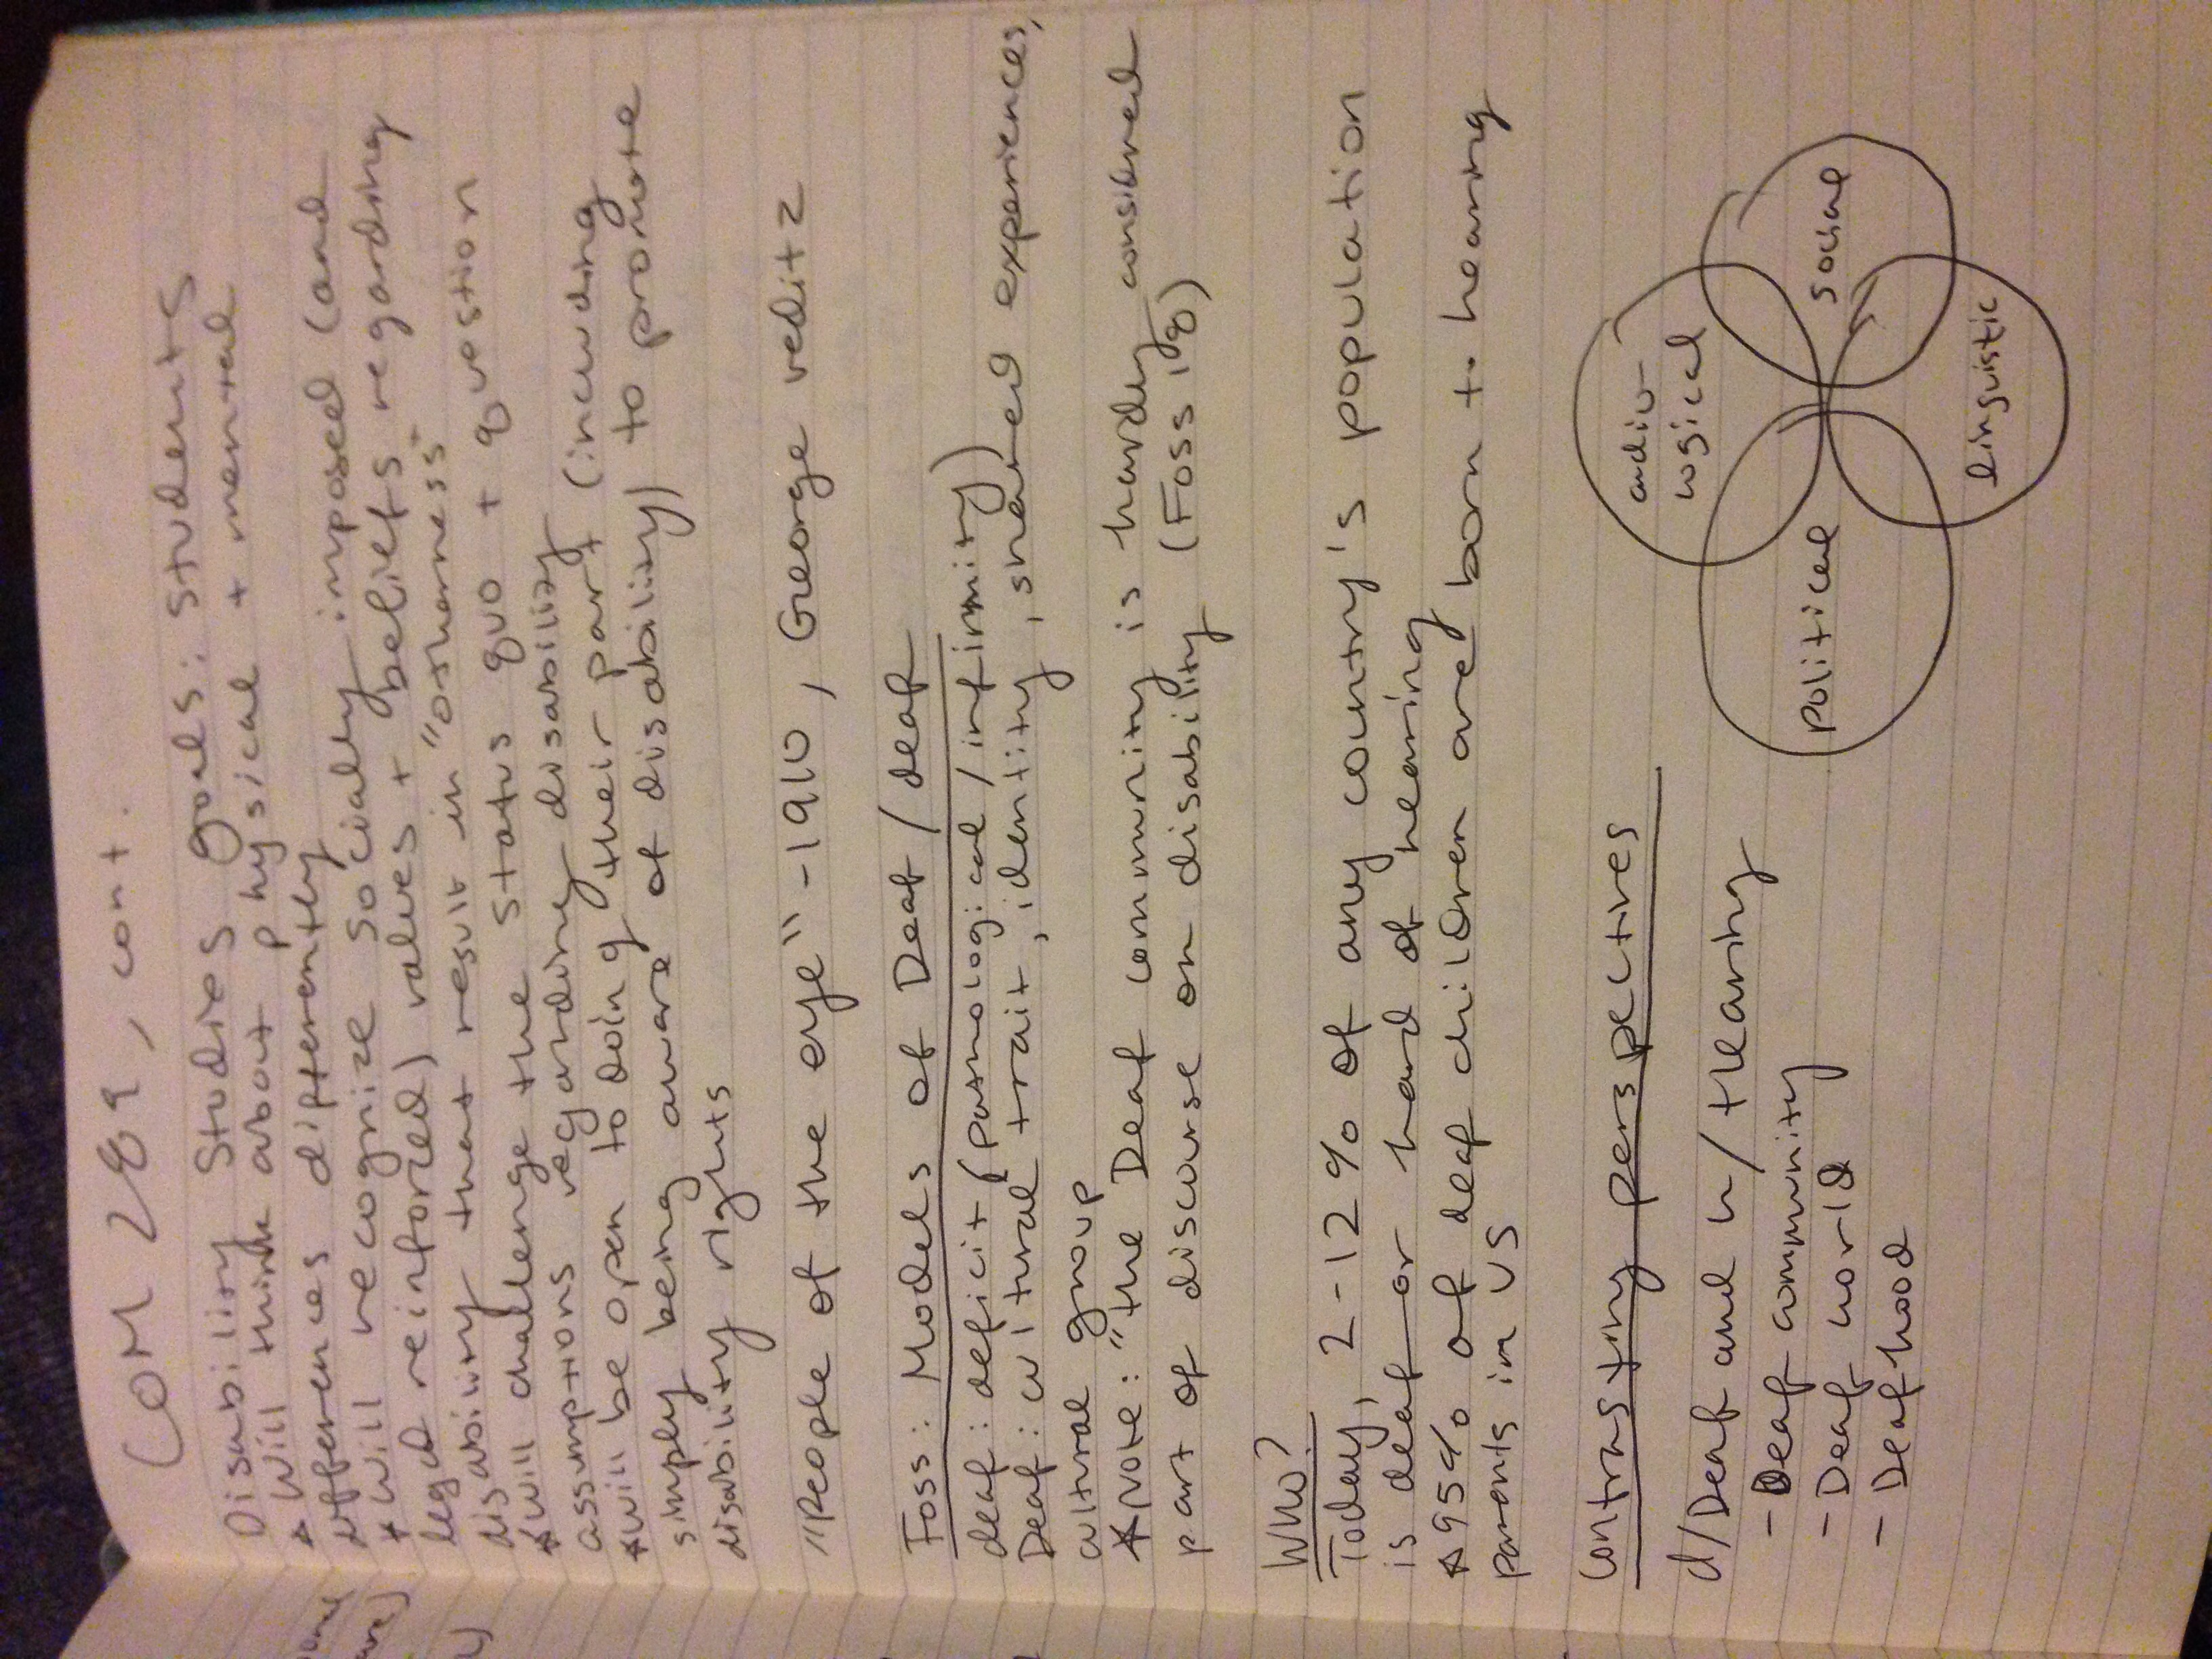 COM 289, cont.
Disability Studies Goals: Students
* will think about physical + mental
differences differently
* will recognize socially imposed (and
legal reinforced) values + beliefs regarding
disability that result in "otherness"
* will challenge the status quo + question
assumptions regarding disability
* will be open to doing their part (including
simply being aware of disability) to promote
disability rights
"People of the eye" - 1910, George Veditz
Foss: Models of Deaf/deaf
deaf: deficit (pathological/infirmity)
Deaf: cultural trait, identity, shared experiences,
cultural group
* Note: "the Deaf community is hardly considered
part of discourse on disability (Foss, 98)
Who?
Today, 2-12% of any country's population
is deaf or hard of hearing
* 95% of deaf children are born to hearing
parents in US
Contrasting perspectives
d/Deaf and h/Hearing
- Deaf community
- Deaf world
- Deafhood
audio-
logical
political
social
linguistic